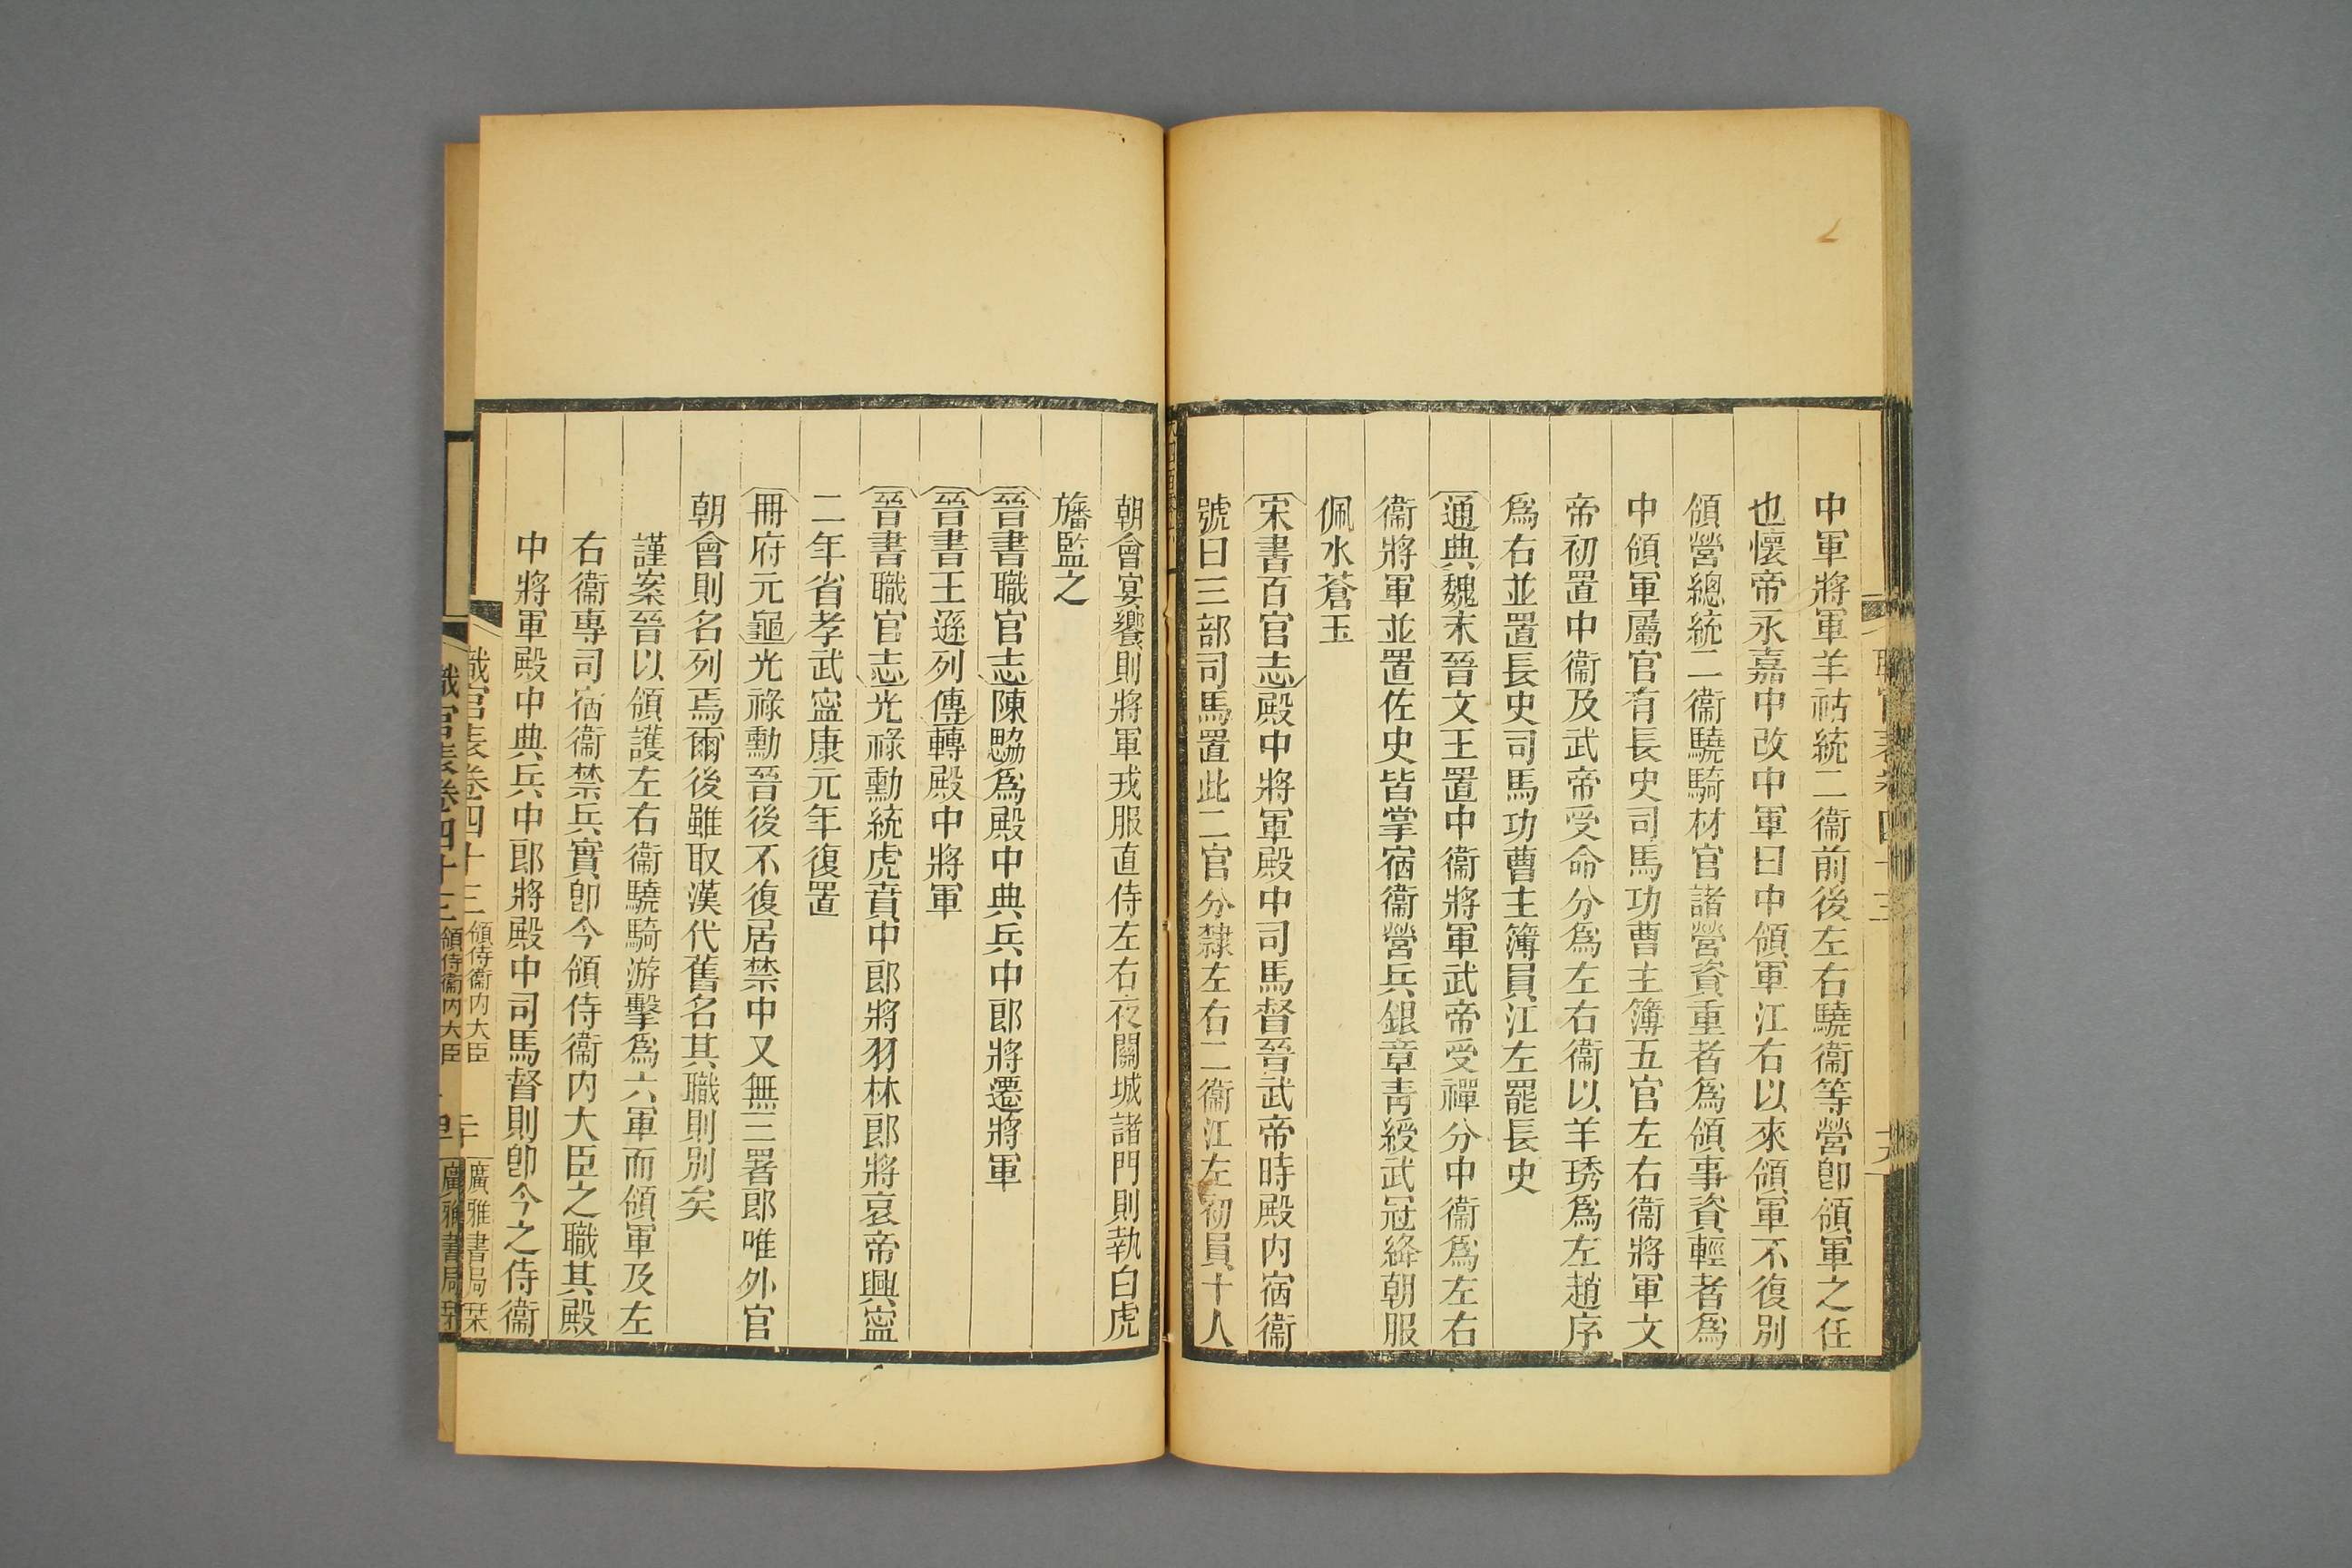 中軍將軍羊祜統二衞前後左右驍衞等營卽領軍之任
也懷帝永嘉中改中軍曰中領軍江右以來領軍不復別
領營總統二衞驍騎材官諸營資重者爲領事資輕者爲
中領軍屬官有長史司馬功曹主簿五官左右衞將軍文
帝初置中衞及武帝受命分爲左右衞以羊琇爲左趙序
爲右並置長史司馬功曹主簿員江左罷長史
通典魏末晉文王置中衞將軍武帝受禪分中衞爲左右
衞將軍並置佐史皆掌宿衞營兵銀章靑綬武冠絳朝服
佩水蒼玉
宋書百官志殿中將軍殿中司馬督晉武帝時殿內宿衞
號曰三部司馬置此二官分隸左右二衞江左初員十人
朝會宴饗則將軍戎服直侍左右夜開城諸門則執白虎
旛監之
晉書職官志陳勰爲殿中典兵中郎將遷將軍
晉書王遜列傳轉殿中將軍
晉書職官志光祿勳統虎賁中郎將羽林郎將哀帝興寧
二年省孝武寧康元年復置
冊府元龜光祿勳晉後不復居禁中又無三署郎唯外官
朝會則名列焉爾後雖取漢代舊名其職則別矣
謹案晉以領護左右衞驍騎游擊爲六軍而領軍及左
右衞專司宿衞禁兵實卽今領侍衞內大臣之職其殿
中將軍殿中典兵中郎將殿中司馬督則卽今之侍衞
職官表卷四十三 領侍衞內大臣 二十 廣雅書局栞
職官表卷四十三 領侍衞內大臣 廣雅書局栞